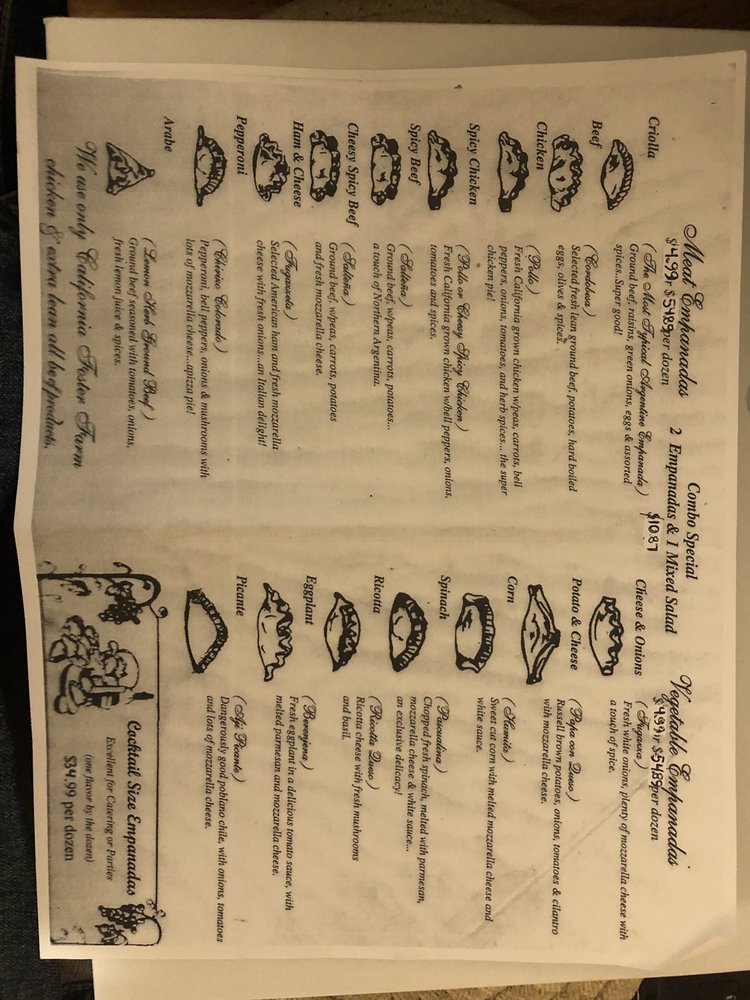 Meat Empanadas
$4.99 $54.89 per dozen
Criolla
(The Most Typical Argentine Empanada)
Ground beef, raisins, green onions, eggs & assorted
spices. Super good!
Beef
(Cordobesa)
Selected fresh lean ground beef, potatoes, hard boiled
eggs, olives & spices.
Chicken
(Pollo)
Fresh California grown chicken w/peas, carrots, bell
peppers, onions, tomatoes, and herb spices... the super
chicken pie!
Spicy Chicken
(Pollo or Cheesy Spicy Chicken)
Fresh California grown chicken w/bell peppers, onions,
tomatoes and spices.
Spicy Beef
(Salteña)
Ground beef, w/peas, carrots, potatoes...
a touch of Northern Argentina.
Cheesy Spicy Beef
(Salteña)
Ground beef, w/peas, carrots, potatoes
and fresh mozzarella cheese.
Ham & Cheese
(Fugazzeta)
Selected American ham and fresh mozzarella
cheese with fresh onions...an Italian delight!
Pepperoni
(Chorizo Colorado)
Pepperoni, bell peppers, onions & mushrooms with
lots of mozzarella cheese...apizza pie!
Arabe
(Lemon Herb Ground Beef)
Ground beef seasoned with tomatoes, onions,
fresh lemon juice & spices.
We use only California Foster Farm
chicken & extra lean all beef products.
Combo Special
2 Empanadas & 1 Mixed Salad
$10.87
Vegetable Empanadas
$4.99 $54.89 per dozen
Cheese & Onions
(Fugazza)
Fresh white onions, plenty of mozzarella cheese with
a touch of spice.
Potato & Cheese
(Papa con Queso)
Russell brown potatoes, onions, tomatoes & cilantro
with mozzarella cheese.
Corn
(Humita)
Sweet cut corn with melted mozzarella cheese and
white sauce.
Spinach
(Pascualina)
Chopped fresh spinach, melted with parmesan,
mozzarella cheese & white sauce...
an exclusive delicacy!
Ricotta
(Ricotta Queso)
Ricotta cheese with fresh mushrooms
and basil.
Eggplant
(Berenjena)
Fresh eggplant in a delicious tomato sauce, with
melted parmesan and mozzarella cheese.
Picante
(Aji Picante)
Dangerously good poblano chile, with onions, tomatoes
and lots of mozzarella cheese.
Cocktail Size Empanadas
Excellent for Catering or Parties
(one flavor by the dozen)
$34.99 per dozen